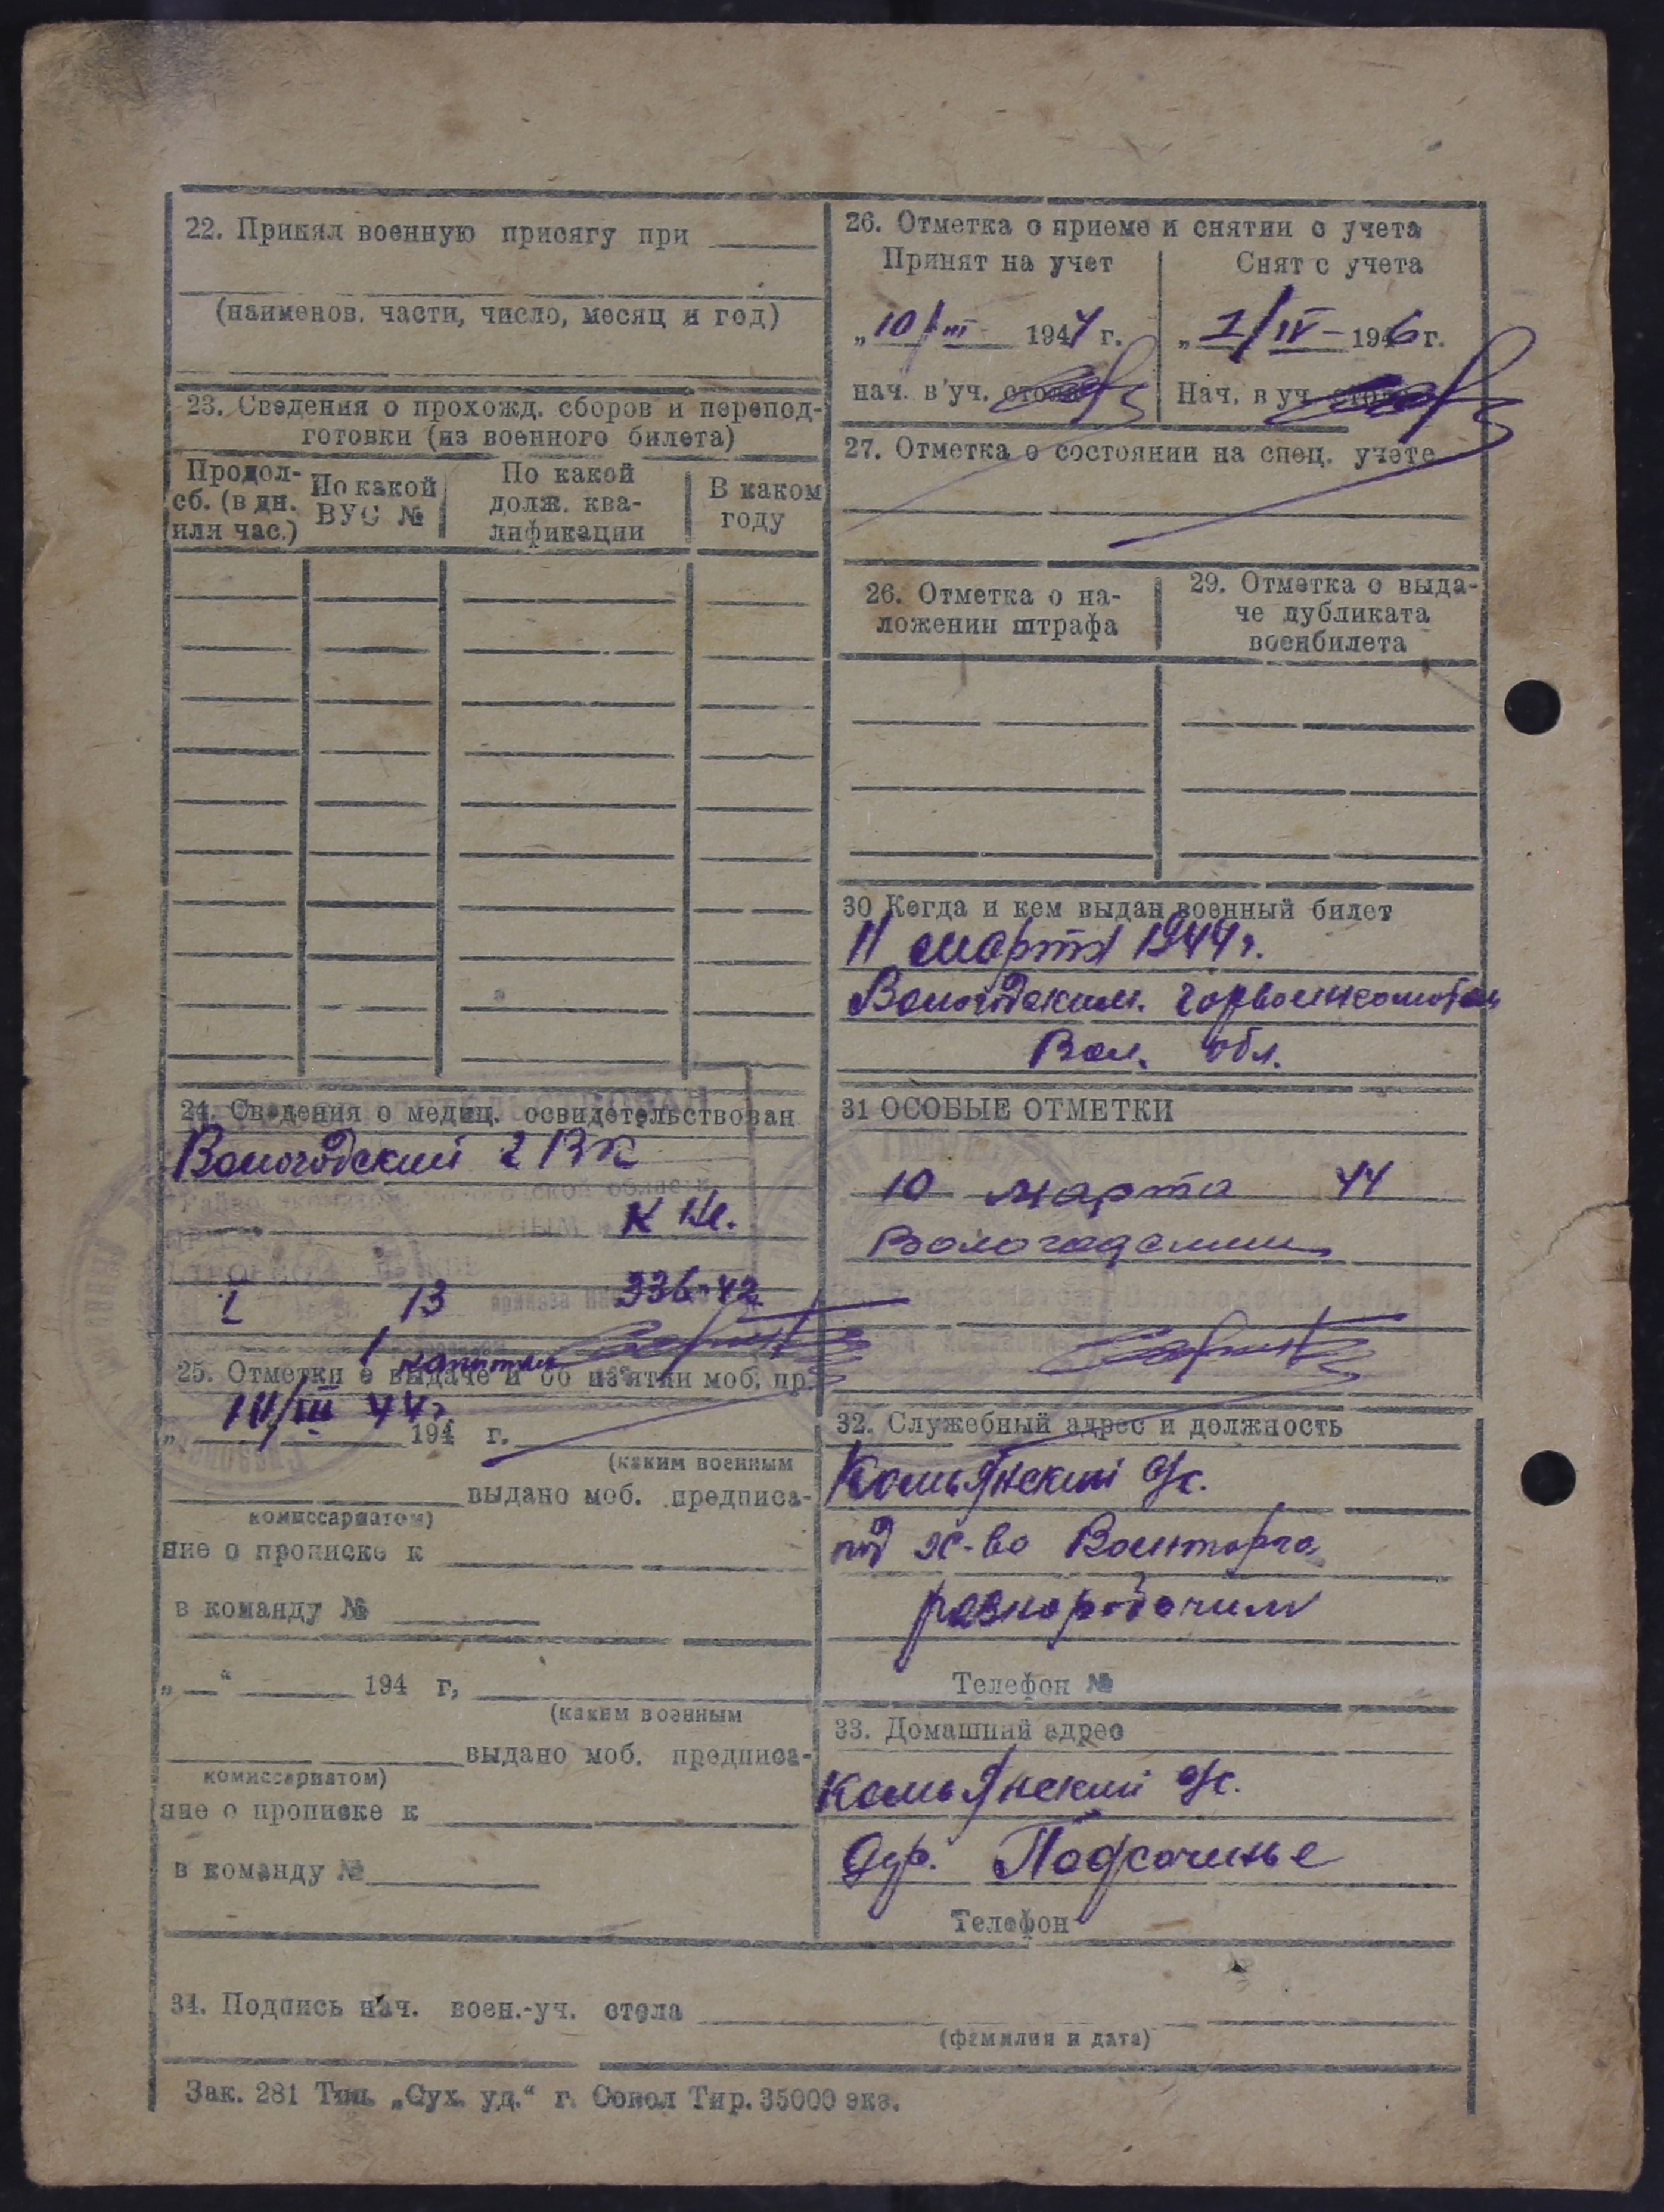 22. Принял военную присягу при
(наименов. части, число, месяц и год)
23. Сведения о прохожд. сборов и перепод-
готовки (из военного билета)
Продол-
сб. (в дн.
или час.)
По какой
ВУС №
По какой
долж. ква-
лификации
В каком
году
24. Сведения о медиц. освидетельствован
Вологодский ГВК
336-42
25. Отметки о выдаче и об из'ятии моб. пр
III 44г
„ 194 г.
(каким военным
выдано моб. предписа-
комиссариатом)
ние о прописке к
в команду №
„ “ 194 г,
(каким военным
выдано моб. предписа-
комиссариатом)
ние о прописке к
в команду №
26. Отметка о приеме и снятии с учета
Принят на учет
Снят с учета
„ 10/III- 1944 г.
„ 1/IV- 1946 г.
нач. в уч. стола
Нач. в уч. стола
27. Отметка о состоянии на спец. учете
26. Отметка о на-
ложении штрафа
29. Отметка о выда-
че дубликата
военбилета
30 Когда и кем выдан военный билет
11 марта 1944г.
Вологодским. горвоенкоматом
Вол. обл.
31 ОСОБЫЕ ОТМЕТКИ
10 марта 44
Вологодским
32. Служебный адрес и должность
Комьянский с/с.
под х-во Военторга
разнорабочим
Телефон №
33. Домашний адрес
Комьянский с/с.
дер. Подсочинье
Телефон
34. Подпись нач. воен.-уч. стола
(фамилия и дата)
Зак. 281 Тип. „Сух. уд.“ г. Сокол Тир. 35000 экз.